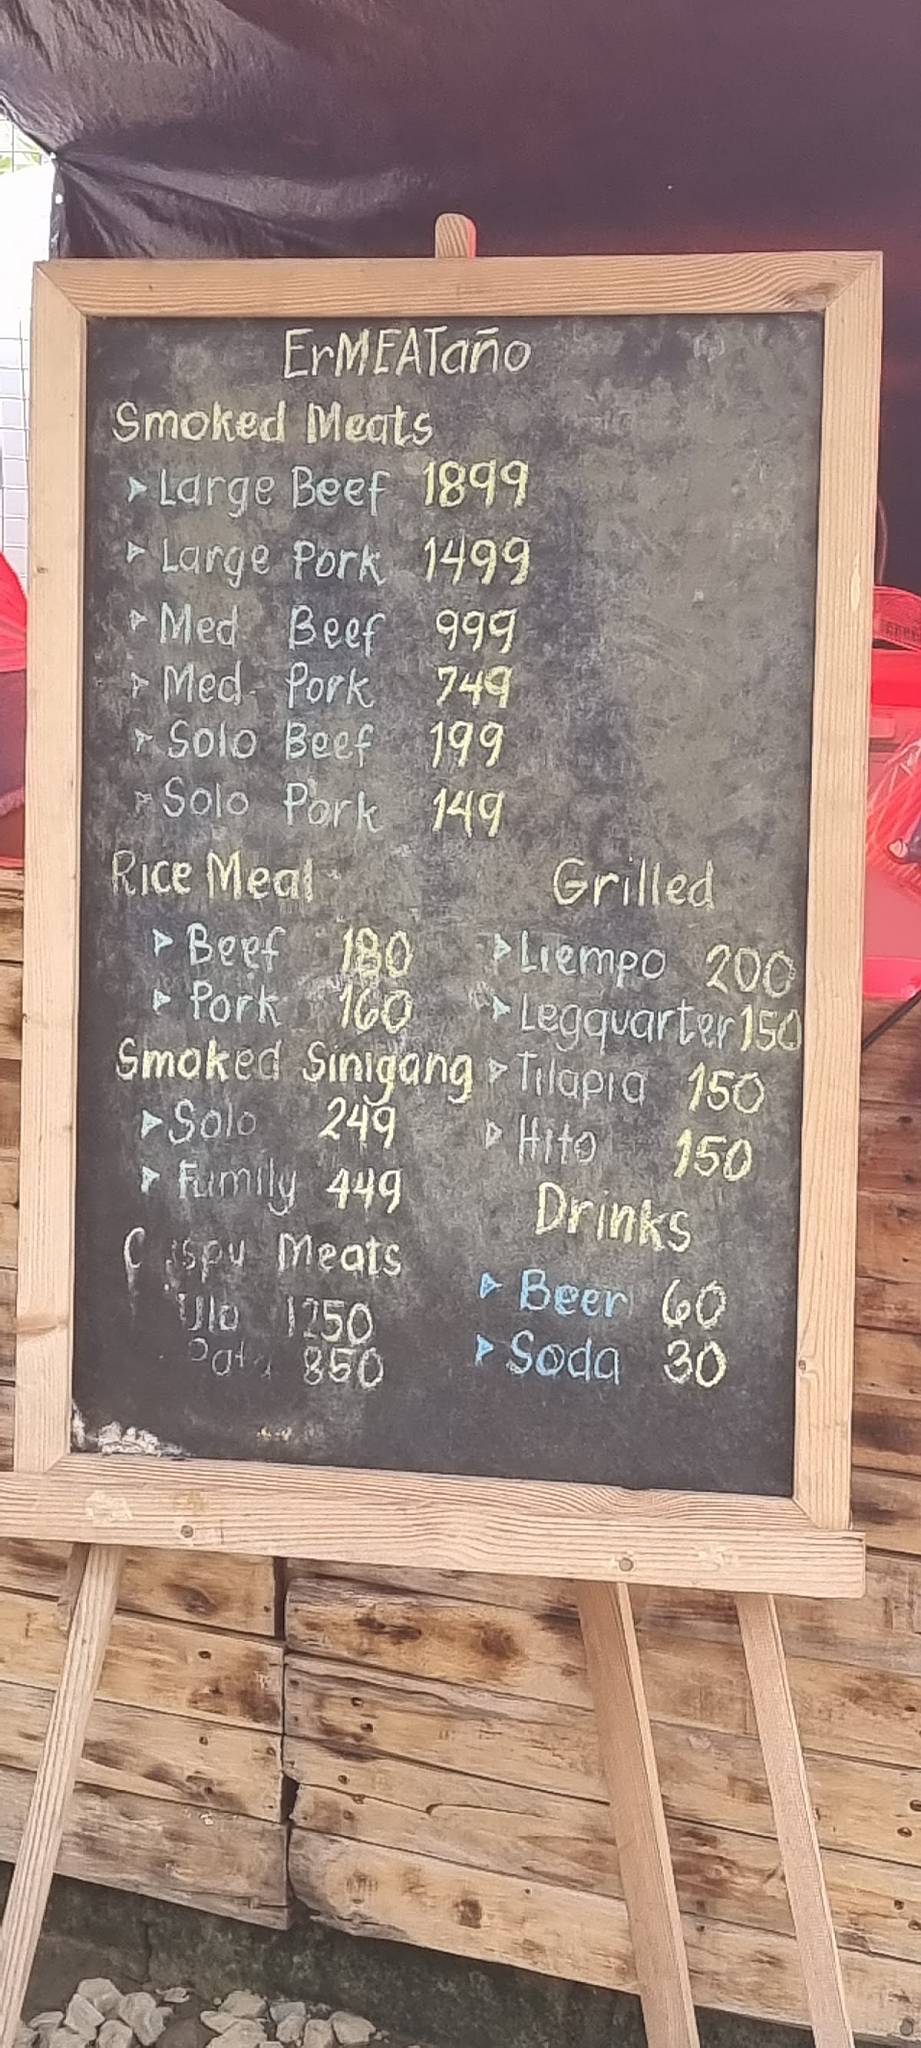 ErMEATaño
Smoked Meats
Large Beef 1899
Large Pork 1499
Med Beef 999
Med Pork 749
Solo Beef 199
Solo Pork 149
Rice Meal
Beef 180
Pork 160
Smoked Sinigang
Solo 249
Family 449
Meats
1250
850
Grilled
Liempo 200
Legquarter 150
Tilapia 150
Hito 150
Drinks
Beer 60
Soda 30